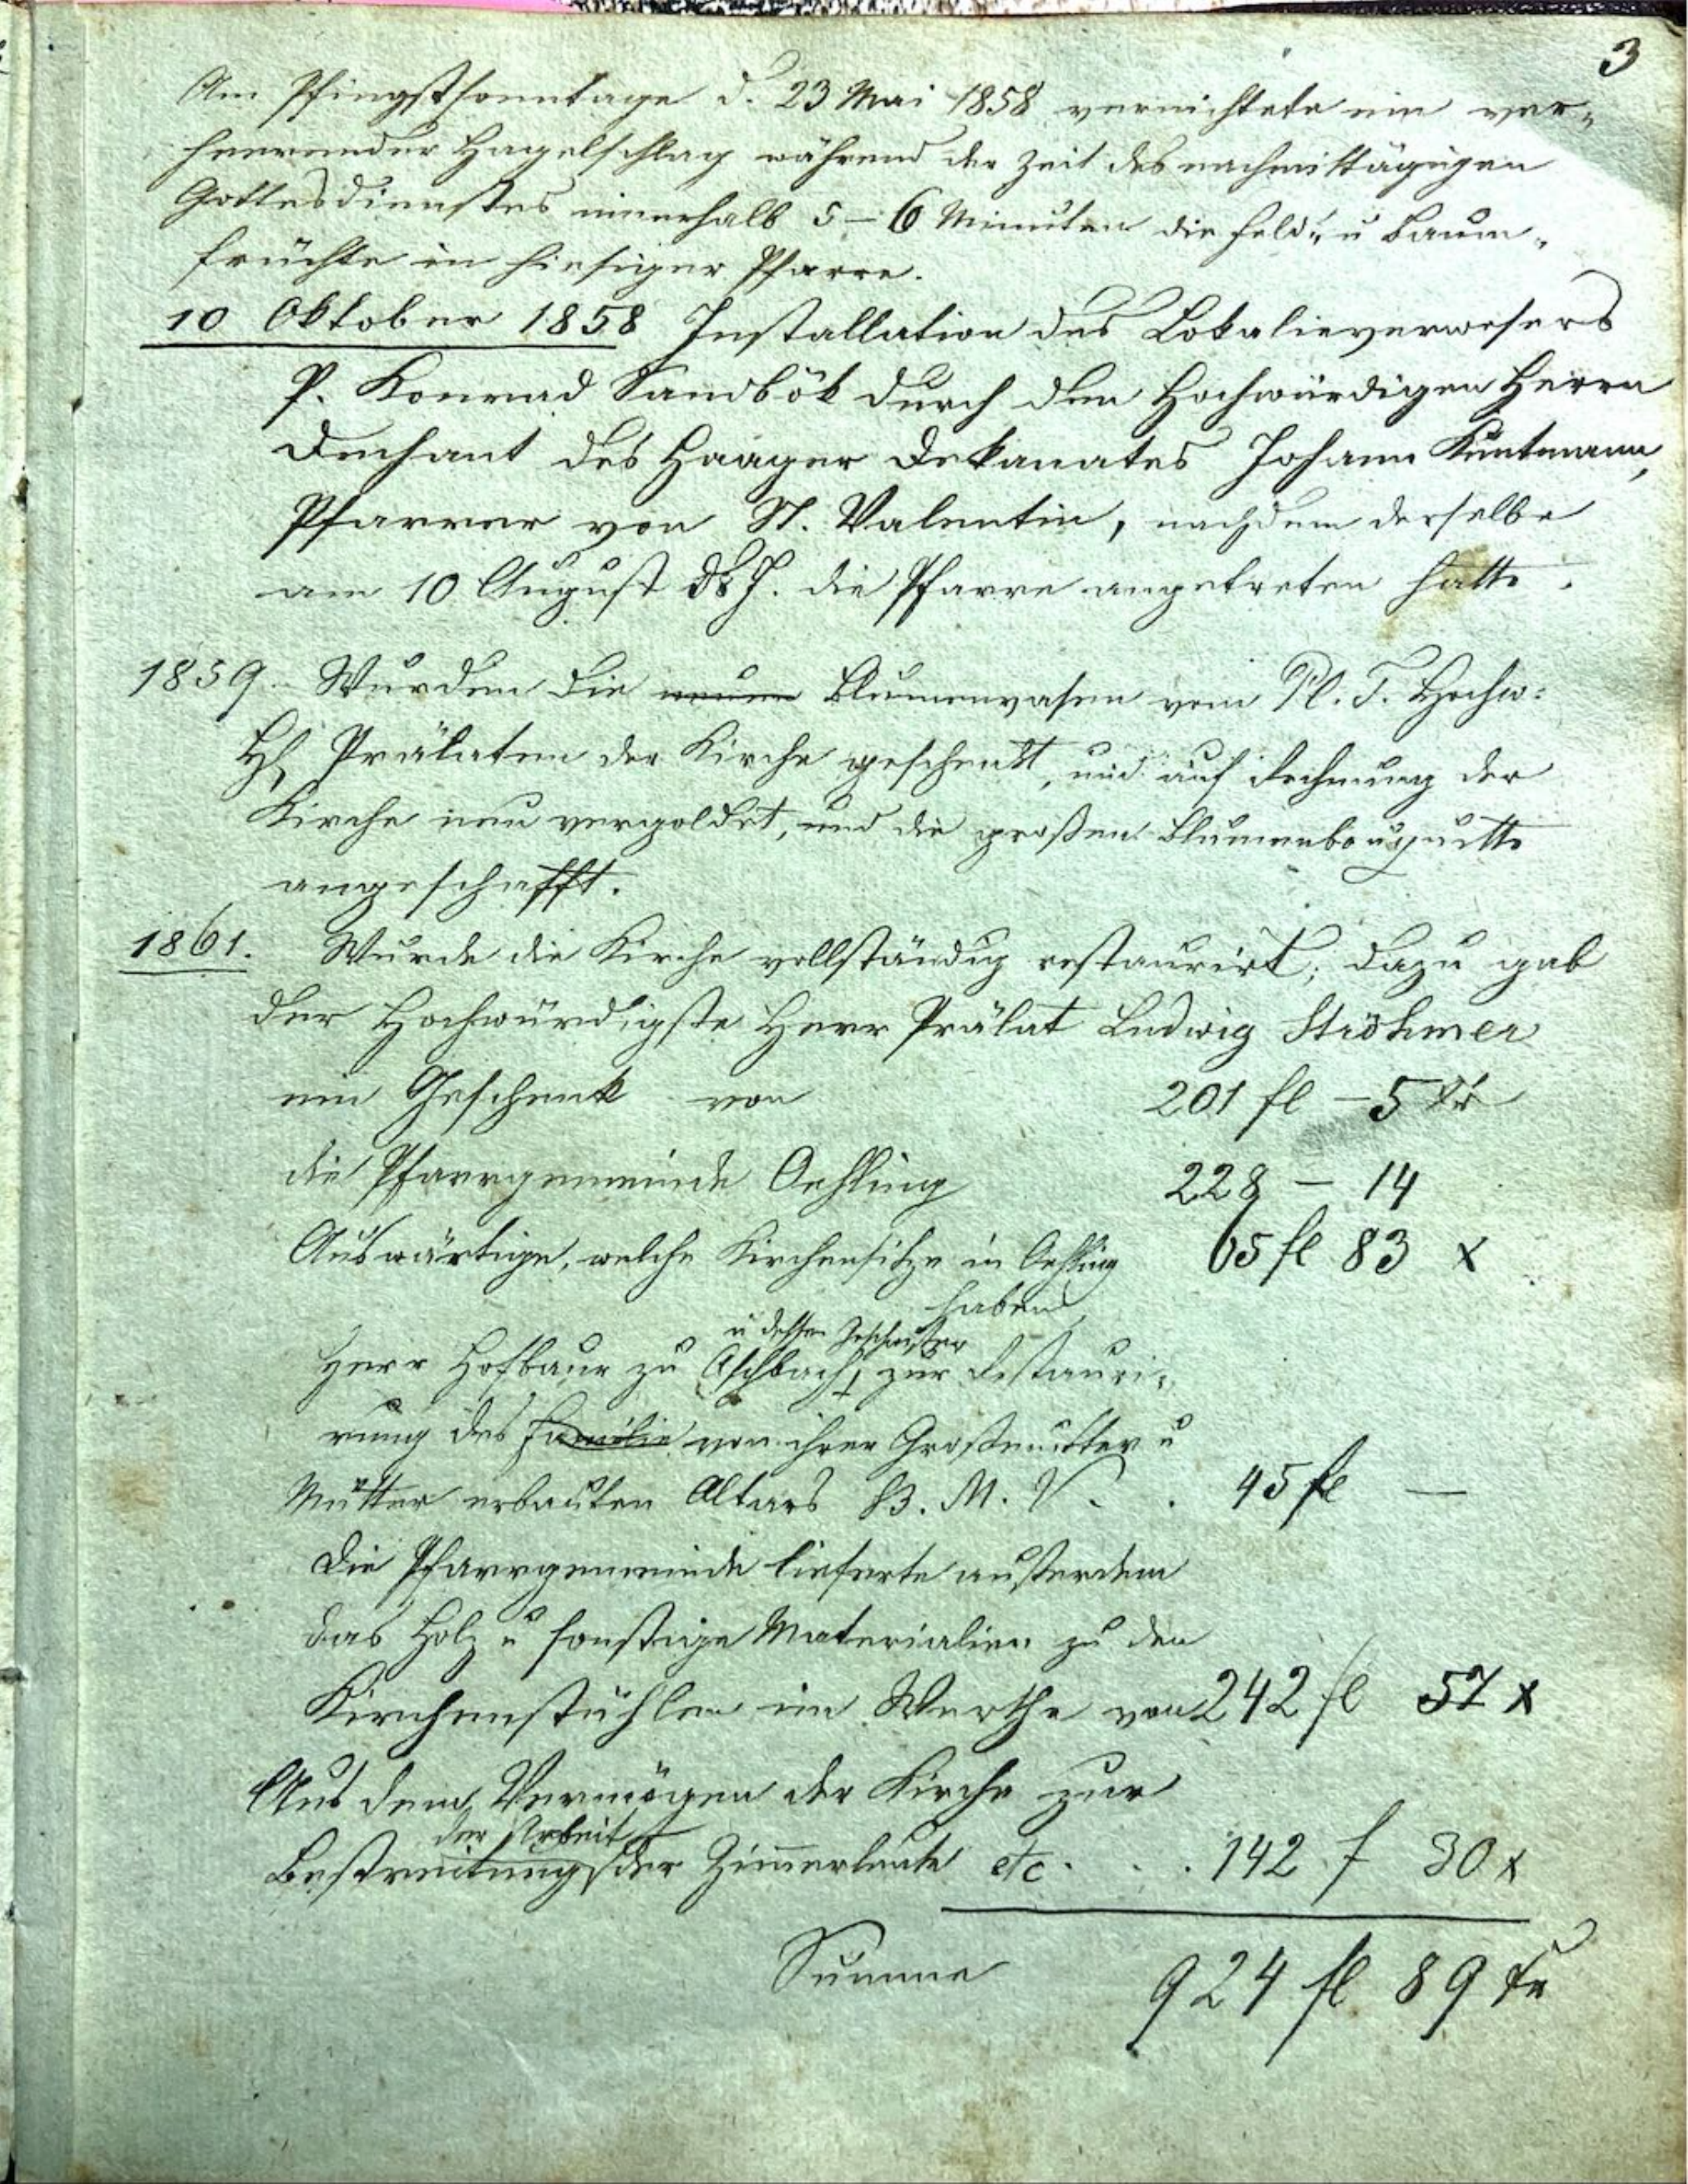 3
Am Pfingstsonntage d. 23 Mai 1858 vernichtete ein ver-
heerender Hagelschlag während der Zeit des nachmittägigen
Gottesdienstes innerhalb 5–6 Minuten die Feld- u Baum-
früchte in hiesiger Pfarre.
10 Oktober 1858 Installation des Lokalieverwesers
P. Konrad Sandbök durch den Hochwürdigen Herrn
Dechant des Haager Dekanates Johann
Pfarrer von St. Valentin, nachdem derselbe
am 10 August ds J. die Pfarre angetreten hatte.
1859. Wurden die neuen Blumenvasen vom Pl. T. Hochw:
H Prälaten der Kirche geschenkt, und auf Rechnung der
Kirche neu vergoldet, und die großen Blumenbouquette
angeschafft.
1861. Wurde die Kirche vollständig restaurirt; dazu gab
der Hochwürdigste Herr Prälat Ludwig Ströhmer
ein Geschenk von 201 fl – 5 xr
die Pfarrgemeinde Oehling 228 – 14
Auswärtige, welche Kirchensitze in Oehling 65 fl 83 x
haben
u dessen Geschwister
Herr Hofbaur zu Aschbach, zur Restauri-
rung des Familie von ihrer Großmutter u
Mutter erbauten Altars B. M. V. . 45 fl —
Die Pfarrgemeinde lieferte außerdem
das Holz u sonstige Materialien zu den
Kirchenstühlen im Werthe von 242 fl 57 x
Aus dem Vermögen der Kirche zur
der Arbeit
Bestreitung der Zimmerleute etc. . . 142 f 30 x
Summe 924 fl 89 xr